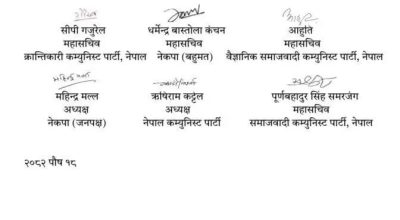 सीपी गजुरेल धर्मेन्द्र बास्तोला कंचन आहुति
महासचिव महासचिव महासचिव
क्रान्तिकारी कम्युनिस्ट पार्टी, नेपाल नेकपा (बहुमत) वैज्ञानिक समाजवादी कम्युनिस्ट पार्टी, नेपाल
महिन्द्र मल्ल ऋषिराम कट्टेल पूर्णबहादुर सिंह समरजंग
अध्यक्ष अध्यक्ष महासचिव
नेकपा (जनपक्ष) नेपाल कम्युनिस्ट पार्टी समाजवादी कम्युनिस्ट पार्टी, नेपाल
२०८२ पौष १८